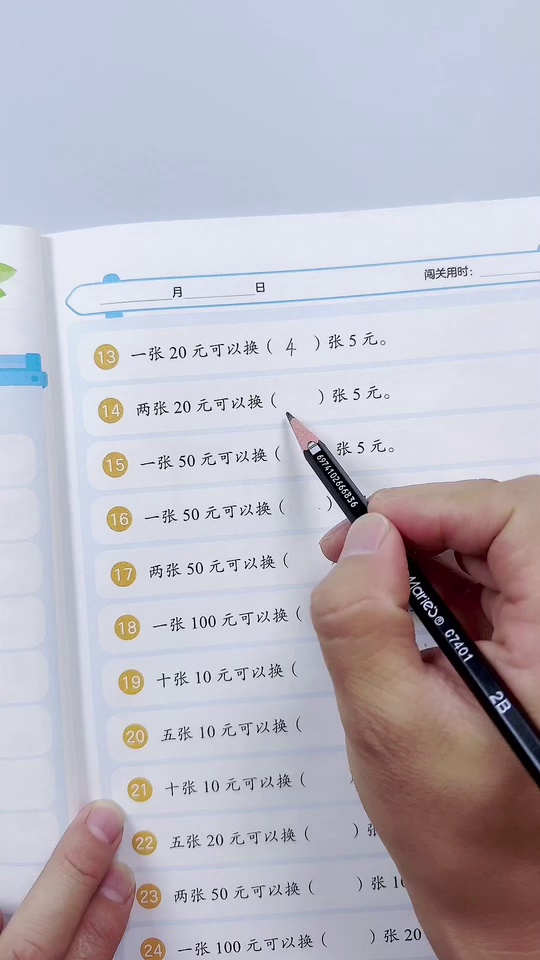 月 日
闯关用时：
13 一张 20 元可以换（ 4 ）张 5 元。
14 两张 20 元可以换（ ）张 5 元。
15 一张 50 元可以换（ 张 5 元。
16 一张 50 元可以换（ ）
17 两张 50 元可以换（
18 一张 100 元可以换（
19 十张 10 元可以换（
20 五张 10 元可以换（
21 十张 10 元可以换（ ）
22 五张 20 元可以换（ ）张
23 两张 50 元可以换（ ）张 10
24 一张 100 元可以换（ ）张 20
6974102666836
Marie's® C7401 2B